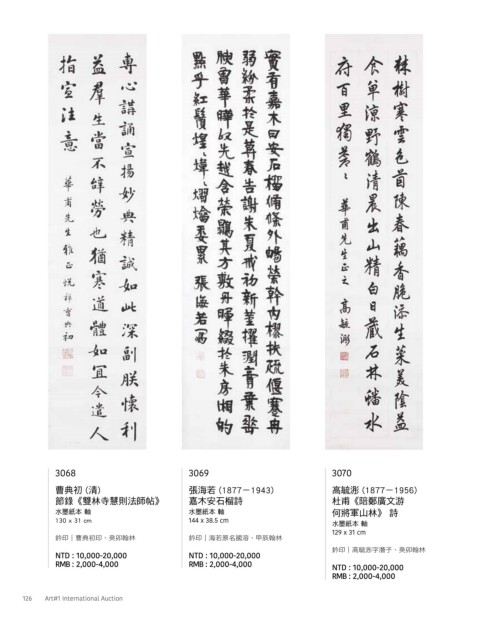 專心講誦宣揚妙典精誠如此深副朕懷利
益羣生當不辭勞也猶寒道體如宜今遣人
指宣注意 華甫先生雅正 曹典初
實有嘉木曰安石榴脩條外暢榮幹內樛扶疏偃蹇冉
弱紛柔於是暮春告謝朱夏戒初新莖擢潤膏葉垂
腴曾華曄以先越含榮鶡其方敷丹暉綴於朱房缃的
點乎紅鬚煌〻煒〻熠爚委累 張海若寫
棘樹寒雲色茵陳春藕香脆添生菜美陰益
食單涼野鶴清晨出山精白日藏石林蟠水
府百里獨蒼〻 華甫先生正之 高毓浵
3068
曹典初 (清)
節錄《雙林寺慧則法師帖》
水墨紙本 軸
130 x 31 cm
鈐印│曹典初印、癸卯翰林
NTD : 10,000-20,000
RMB : 2,000-4,000
3069
張海若 (1877－1943)
嘉木安石榴詩
水墨紙本 軸
144 x 38.5 cm
鈐印│海若原名國溶、甲辰翰林
NTD : 10,000-20,000
RMB : 2,000-4,000
3070
高毓浵 (1877－1956)
杜甫《陪鄭廣文游
何將軍山林》 詩
水墨紙本 軸
129 x 31 cm
鈐印│高毓浵字潛子、癸卯翰林
NTD : 10,000-20,000
RMB : 2,000-4,000
126 Art#1 International Auction